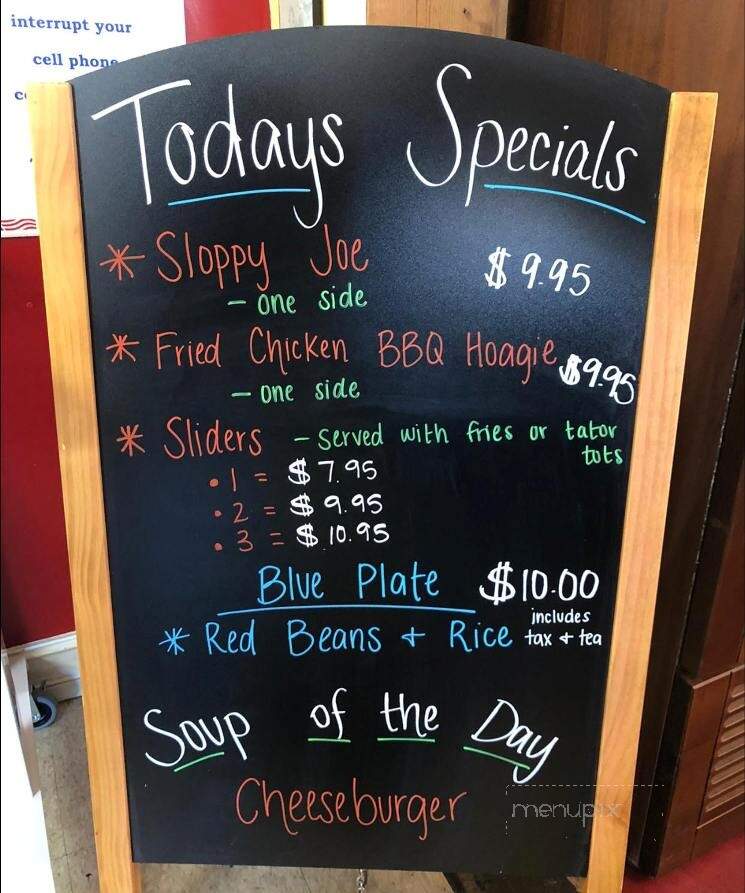 interrupt your
cell phone
Todays Specials
* Sloppy Joe $9.95
- one side
* Fried Chicken BBQ Hoagie $9.95
- one side
* Sliders - Served with fries or tator
tots
• 1 = $7.95
• 2 = $9.95
• 3 = $10.95
Blue Plate $10.00
includes
* Red Beans + Rice tax + tea
Soup of the Day
Cheeseburger
menupix